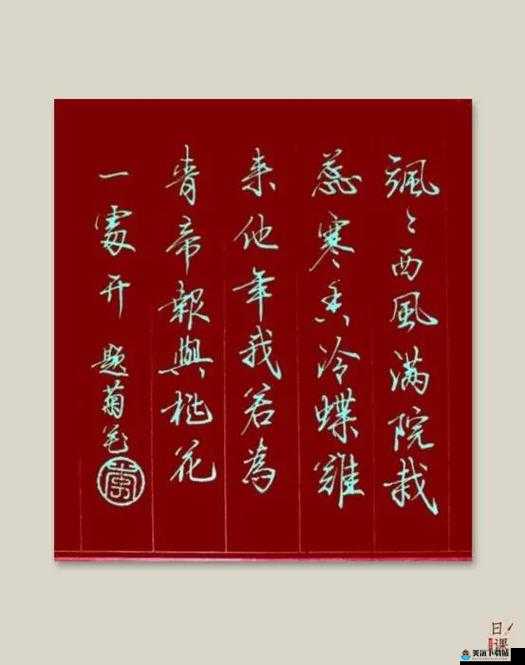 颯〻西風满院栽
蕊寒香冷蝶難
来他年我若為
青帝報與桃花
一處开 题菊花
日课